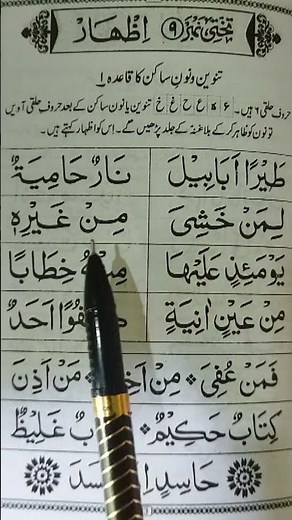 تختی نمبر ۹ اِظْهَار
تنوین و نون ساکن کا قاعدہ ۱
حروف حلقی ۶ ہیں۔ ء ہ ع ح غ خ تنوین یا نون ساکن کے بعد حروف حلقی آویں
تو نون کو ظاہر کر کے بلا غنہ کے جلد پڑھیں گے۔ اس کو اظہار کہتے ہیں۔
طَيْرًا اَبَابِيْلَ نَارٌ حَامِيَةٌ
لِمَنْ خَشِىَ مِنْ غَيْرِهٖ
يَوْمَئِذٍ عَلَيْهَا خِطَابًا
مِنْ عَيْنٍ اٰنِيَةٍ اَحَدٌ
فَمَنْ عُفِىَ مِنْ مَنْ اَذِنَ
كِتَابٌ حَكِيْمٌ غَلِيْظٌ
حَاسِدٍ